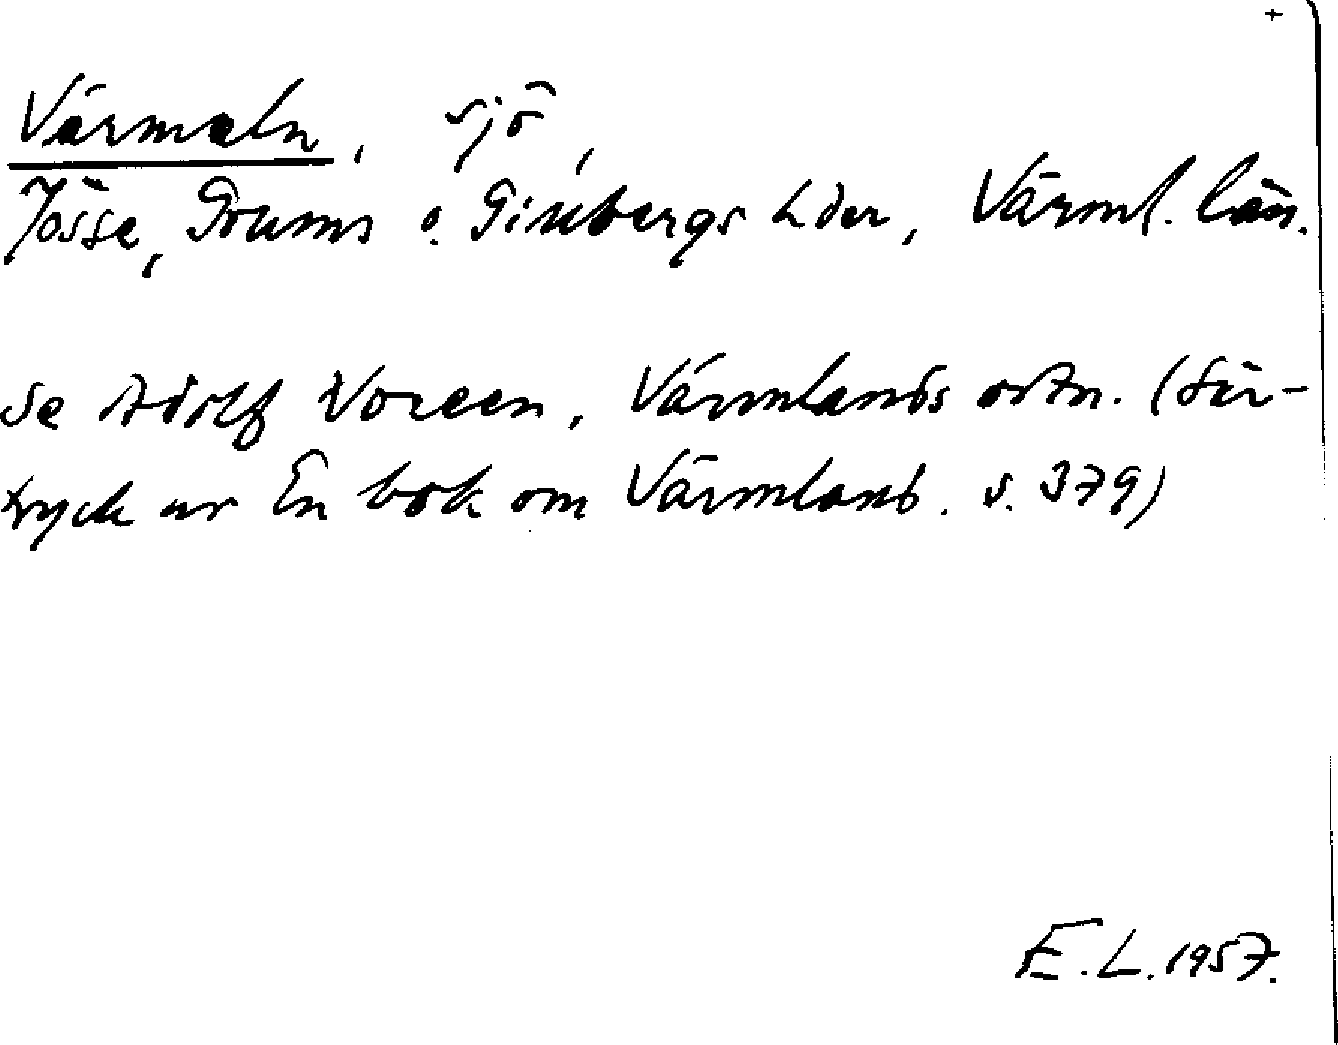 +
Värmeln, sjö,
Jösse, Grums o. Gillbergs hder, Värml. län.
Se Adolf Noreen, Värmlands ortn. (Sär-
tryck ur En bok om Värmland. s. 379)
E.L. 1957.